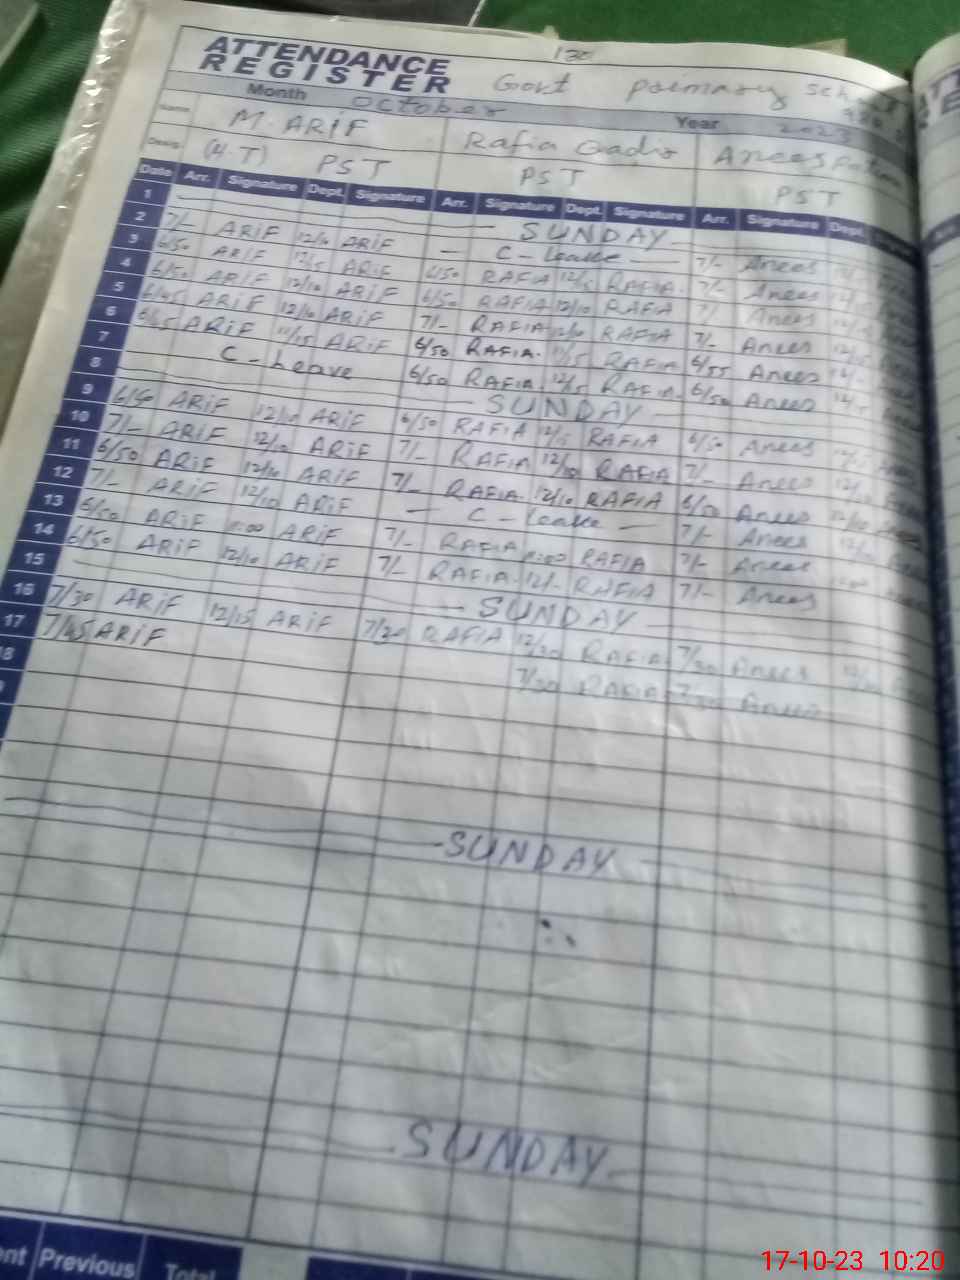 130
ATTENDANCE
REGISTER Govt primary school
Month October Year 2023
Name M. ARiF Rafia Qadir Anees
Desig. (H.T) PST PST PST
Date Arr. Signature Dept. Signature Arr. Signature Dept. Signature Arr. Signature Dept.
1 SUNDAY
2 7/- ARiF 12/10 ARiF - C-Leave - 7/- Anees
3 6/50 ARiF 12/5 ARiF 6/50 RAFIA 12/5 RAFIA 7/- Anees
4 6/50 ARiF 12/10 ARiF 6/50 RAFIA 12/10 RAFIA 7/- Anees
5 6/45 ARiF 12/10 ARiF 7/- RAFIA 12/10 RAFIA 7/- Anees
6 6/45 ARiF 11/15 ARiF 6/50 RAFIA. RAFIA 6/55 Anees
7 C-Leave 6/50 RAFIA 12/5 RAFIA 6/50 Anees
8 SUNDAY
9 ARiF 12/10 ARiF 6/50 RAFIA 12/5 RAFIA 6/50 Anees
10 7/- ARiF 12/10 ARiF 7/- RAFIA 12/10 RAFIA 7/- Anees
11 6/50 ARiF 12/10 ARiF 7/- RAFIA 12/10 RAFIA 6/50 Anees
12 7/- ARiF 12/10 ARiF - C-Leave - 7/- Anees
13 6/50 ARiF ARiF 7/- RAFIA RAFIA 7/- Anees
14 6/50 ARiF 12/10 ARiF 7/- RAFIA 12/- RAFIA 7/- Anees
15 SUNDAY
16 7/30 ARiF 12/15 ARiF 7/20 RAFIA 12/20 RAFIA 7/30 Anees
17 7/45 ARiF 7/30 RAFIA Anees
18
SUNDAY
SUNDAY
Previous Total
17-10-23 10:20